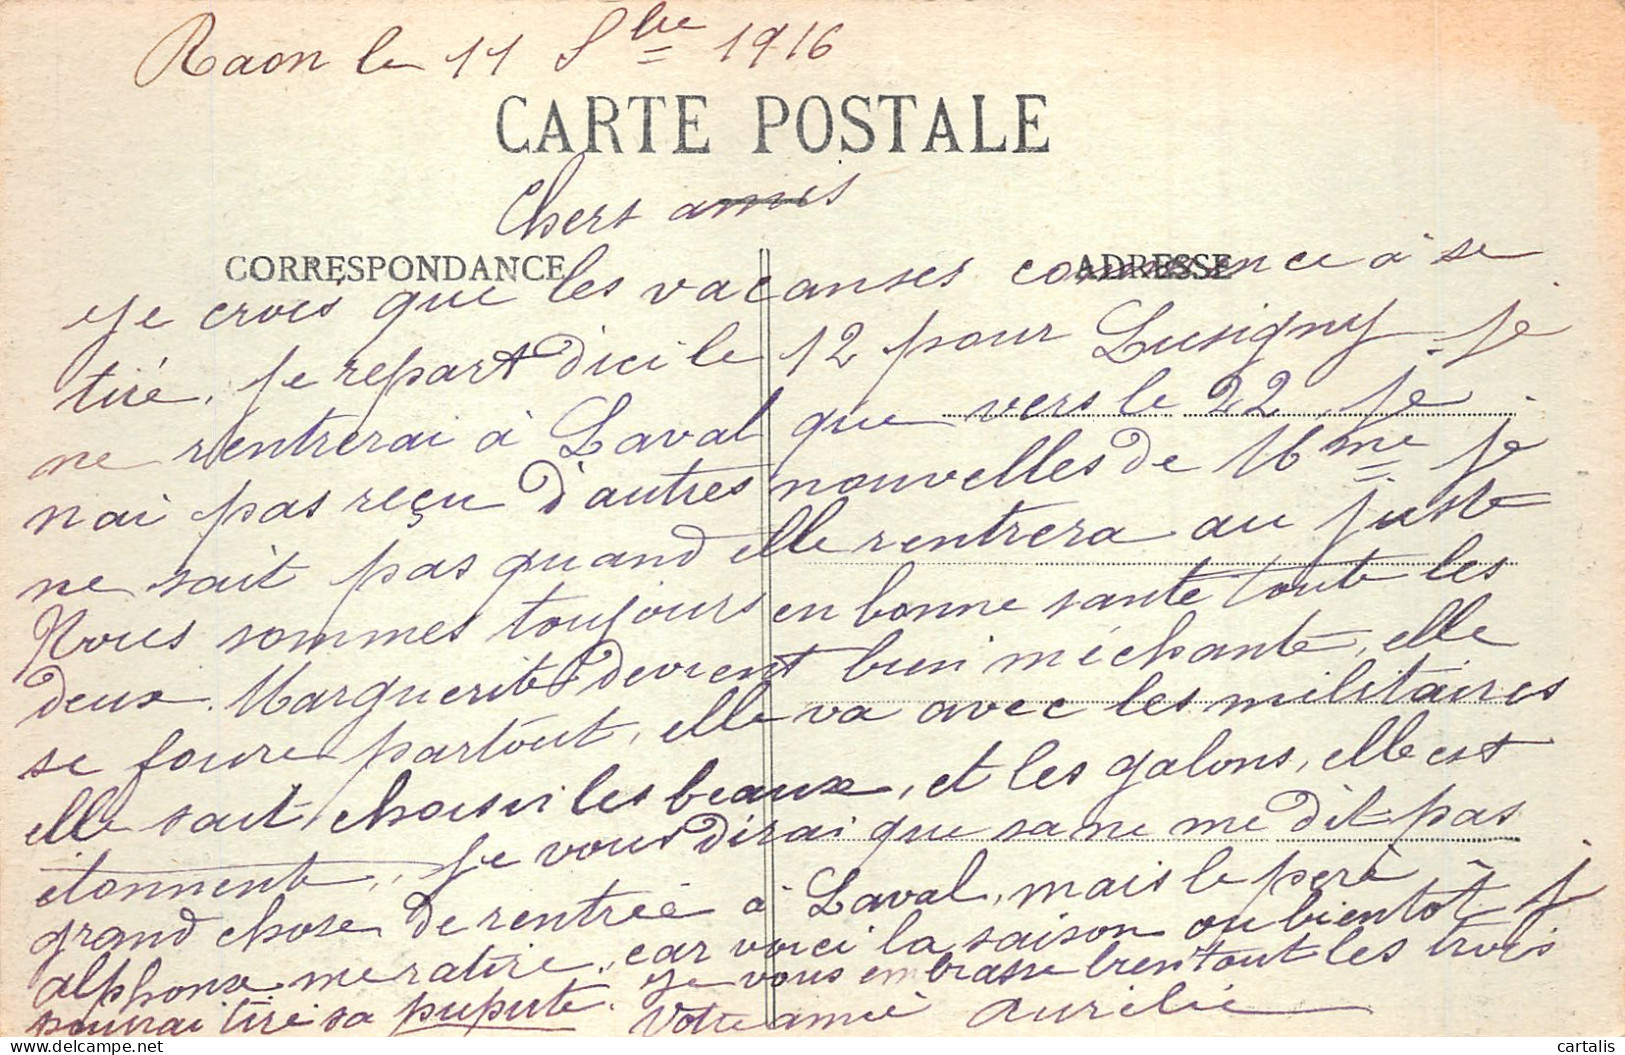 Raon le 11 Sbre 1916
CARTE POSTALE
Chers amis
CORRESPONDANCE ADRESSE
Je crois que les vacanses commence à se
tiré, je repart dici le 12 pour Lusigny je
ne rentrerai à Laval que vers le 22, je
nai pas reçu d'autres nouvelles de Mme je
ne sait pas quand elle rentrera au juste
Nous sommes toujours en bonne sante toute les
deux. Marguerite devient bien méchante, elle
se foure partout, elle va avec les militaires
elle sait choisir les beaux, et les galons, elle est
étonnente, je vous dirai que sa ne me dit pas
grand chose de rentrée à Laval, mais le pere
alphonse me ratire, car voici la saison ou bientôt j
pourrai tiré sa pupute. Je vous embrasse bien tout les trois
Votre amie Aurélie
cartalis